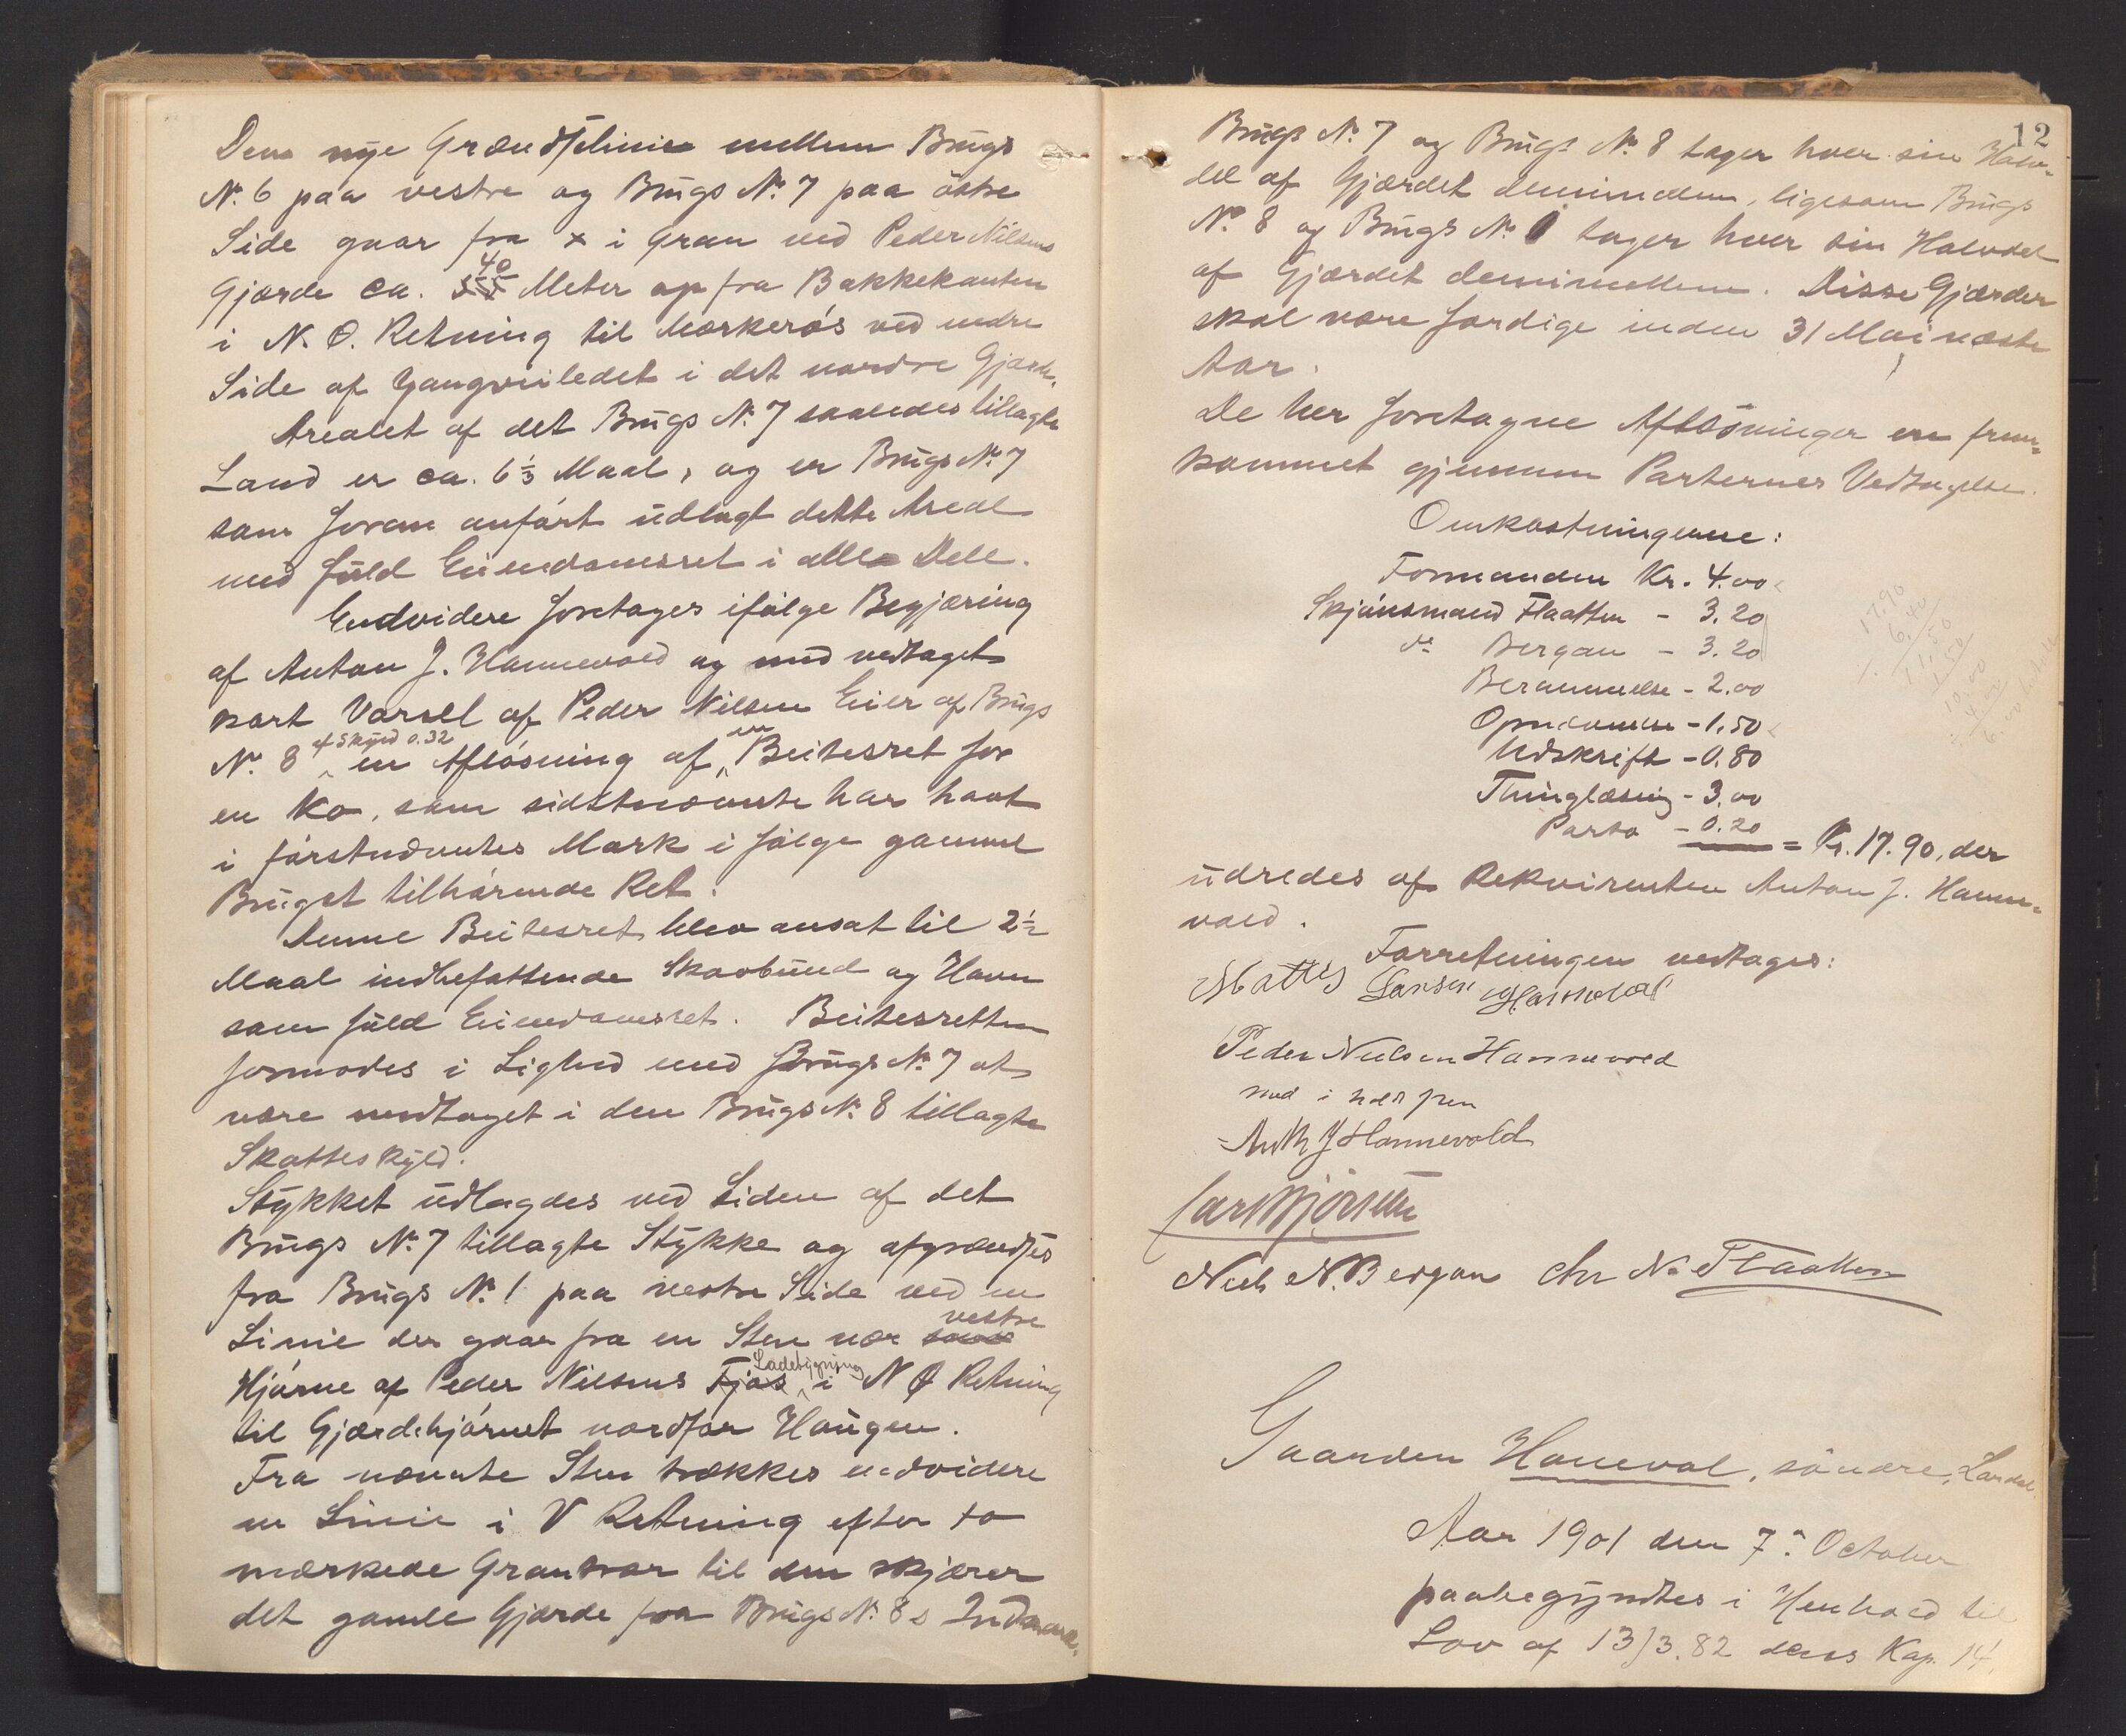 Den nye Grændselinie mellem Brugs
No. 6 paa vestre og Brugs No. 7 paa östre
Side gaar fra x i Gran ved Peder Nilsens
Gjærde ca. 40 Meter op fra Bakkekanten
i N. O. Retning til Mærkerös ved nedre
Side af Gangveiledet i det nordre Gjærde.
Arealet af det Brugs No. 7 saaledes tillagte
Land er ca. 6 1/3 Maal, og er Brugs No. 7
som foran anfört udlagt dette Areal
med fuld Eiendomsret i alle Dele.
Endvidere foretages ifölge Begjæring
af Anton J. Hannevold og med vedtaget
kort Varsel af Peder Nilsen Eier af Brugs
No. 8 af Skyld 0.32 en Aflösning af en Beitesret for
en Ko, som sidstnævnte har havt
i förstnævntes Mark i fölge gammel
Bruget tilhörende Ret.
Denne Beitesret blev ansat til 2 1/2
Maal indbefattende Skovbund og Havn
som fuld Eiendomsret. Beitesretten
formodes i Lighed med Brugs No. 7 at
være medtaget i den Brugs No. 8 tillagte
Skatteskyld.
Stykket udlagdes ved Siden af det
Brugs No. 7 tillagte Stykke og afgrændses
fra Brugs No. 1 paa vestre Side ved en
Linie der gaar fra en Sten nær vestre
Hjörne af Peder Nilsens Fjøs Ladebygning i N Ø Retning
til Gjærdehjörnet nordfor Haugen.
Fra nævnte Sten trækkes endvidere
en Linie i V Retning efter to
mærkede Grantrær til den skjærer
det gamle Gjærde fra Brugs No. 8s Indmark.
12
Brugs No. 7 og Brugs No. 8 tager hver sin Halv-
del af Gjærdet demimellem, ligesom Brugs
No. 8 og Brugs No. 1 tager hver sin Halvdel
af Gjærdet demimellem. Disse Gjærder
skal være færdige inden 31 Mai næste
Aar.
De her foretagne Aflösninger er frem-
kommet gjennem Parternes Vedtagelse.
Omkostningerne:
Formanden Kr. 4.00
Skjönsmand Flaatten - 3.20
do Bergan - 3.20
Berammelse - 2.00
Opnævnelse - 1.50
Udskrift - 0.80
Thinglæsing - 3.00
Porto - 0.20 = Kr. 17.90, der
udredes af Rekvirenten Anton J. Hanne-
vold.
17.90
6.40
11.50
1.50
10.00
4.00
6.00
Forretningen vedtages:
Mattis Larsen Hannevold
Peder Nielsen Hannevold
med i hold pen
Anth J Hannevold
Carl Bjørnsen
Niels N. Bergan Chr N. Flaatten
Gaarden Haneval, söndre, Lardal.
Aar 1901 den 7de October
paabegyndtes i Henhold til
Lov af 13/3. 82 dens Kap. 14,